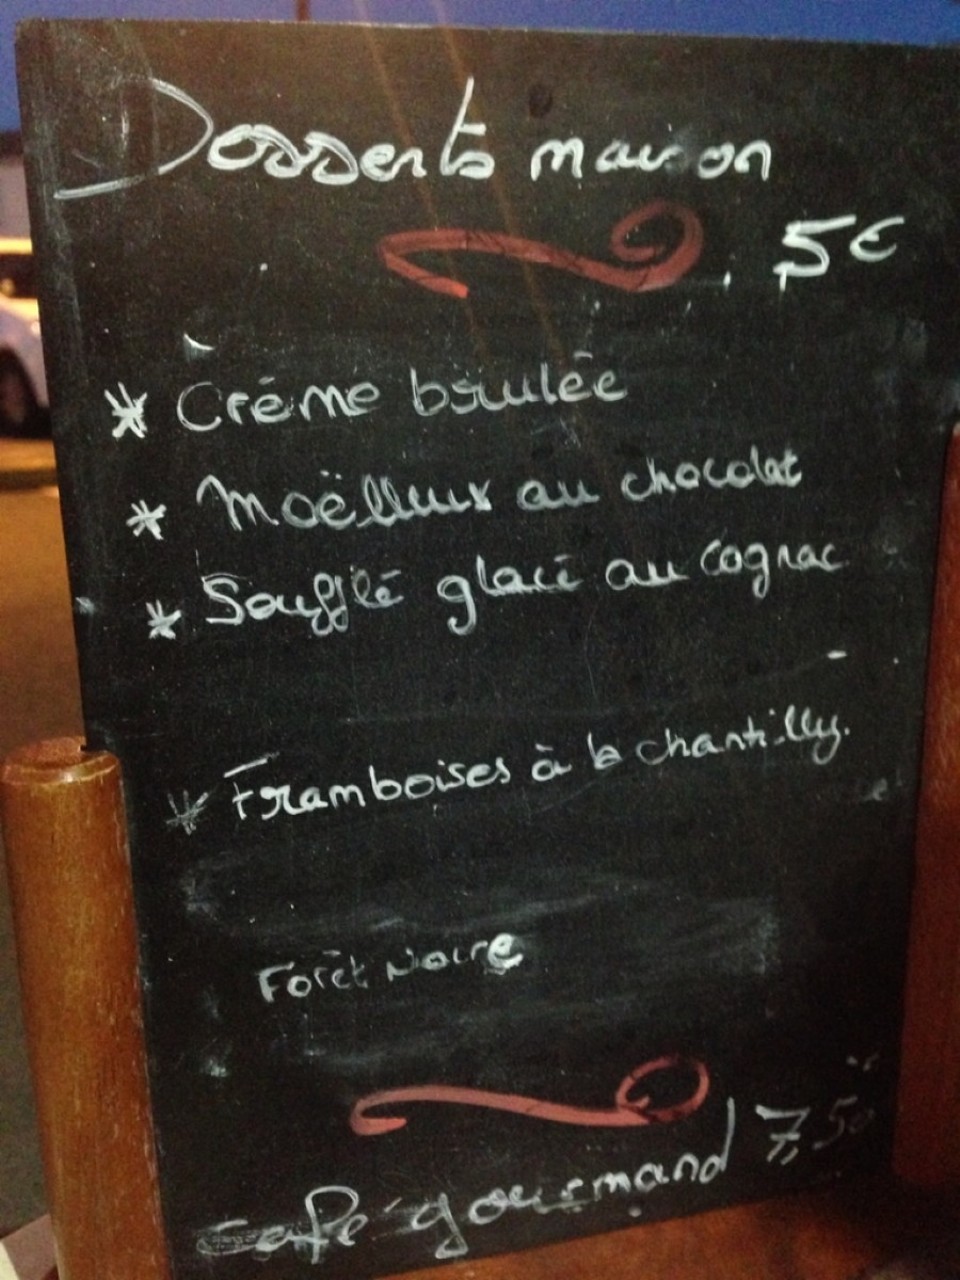 Desserts maison
5€
* Crème brulée
* Moëlleux au chocolat
* Soufflé glacé au cognac
* Framboises à la chantilly.
Forêt Noire
Café gourmand 7,50